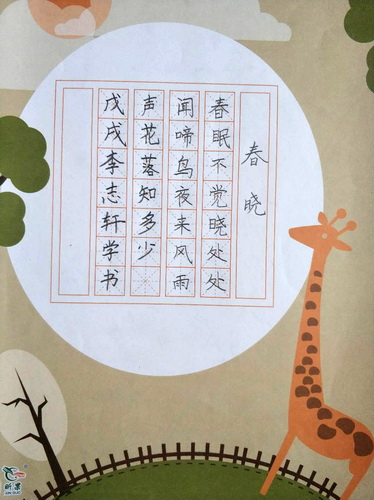 春晓
春眠不觉晓处处
闻啼鸟夜来风雨
声花落知多少
戊戌李志轩学书
昕果
XIN GUO